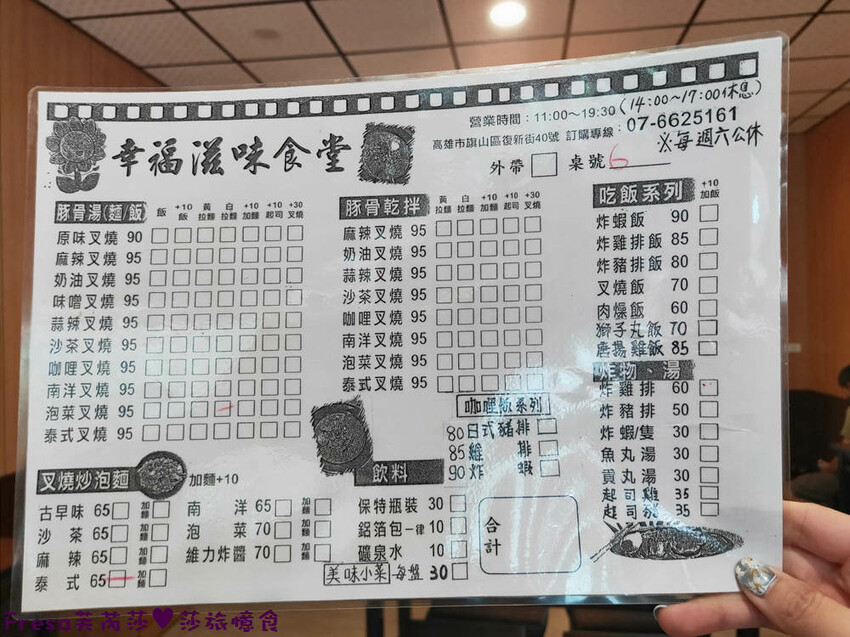 營業時間：11:00～19:30(14:00～17:00休息)
高雄市旗山區復新街40號 訂購專線：07-6625161
※每週六公休
幸福滋味食堂
外帶 桌號6
豚骨湯(麵/飯) 飯 +10加飯 黃拉麵 白拉麵 +10加麵 +10起司 +30叉燒
原味叉燒 90
麻辣叉燒 95
奶油叉燒 95
味噌叉燒 95
蒜辣叉燒 95
沙茶叉燒 95
咖哩叉燒 95
南洋叉燒 95
泡菜叉燒 95
泰式叉燒 95
豚骨乾拌 黃拉麵 白拉麵 +10加麵 +10起司 +30叉燒
麻辣叉燒 95
奶油叉燒 95
蒜辣叉燒 95
沙茶叉燒 95
咖哩叉燒 95
南洋叉燒 95
泡菜叉燒 95
泰式叉燒 95
咖哩飯系列
80日式豬排
85雞排
90炸蝦
吃飯系列 +10加飯
炸蝦飯 90
炸雞排飯 85
炸豬排飯 80
叉燒飯 70
肉燥飯 60
獅子丸飯 70
唐揚雞飯 85
炸物、湯
炸雞排 60
炸豬排 50
炸蝦/隻 30
魚丸湯 30
貢丸湯 30
起司雞 35
起司豬 35
叉燒炒泡麵 加麵+10
古早味 65 加麵
沙茶 65 加麵
麻辣 65 加麵
泰式 65 加麵
南洋 65 加麵
泡菜 70 加麵
維力炸醬 70 加麵
飲料
保特瓶裝 30
鋁箔包一律 10
礦泉水 10
美味小菜 每盤 30
合計
Fresa芙芮莎♥莎旅憶食